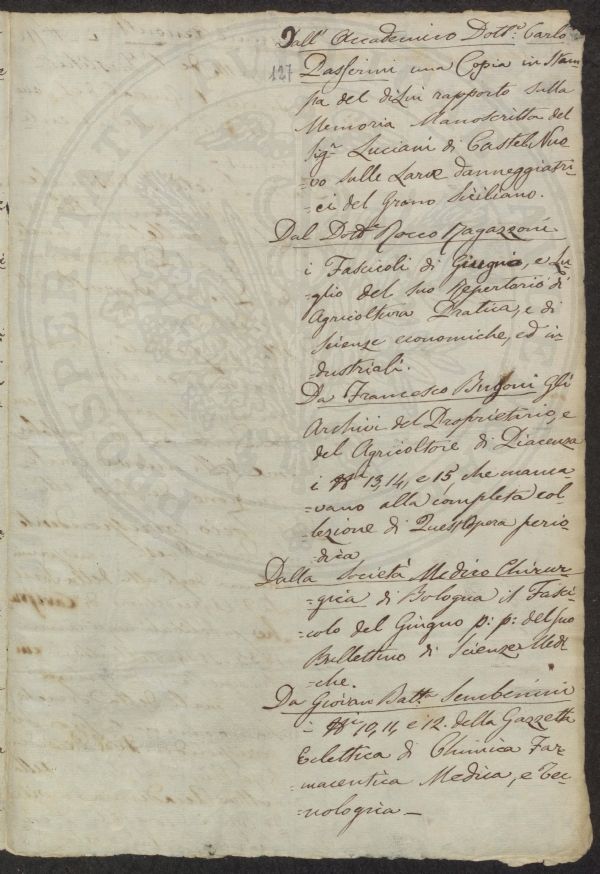 Dall' Accademico Dott.e Carlo
127
Passerini una Copia in Stam-
pa del di Lui rapporto sulla
Memoria Manoscritta del
Sig.r Luciani di Castel Nuo-
vo sulle Larve danneggiatri-
=ci del Grano Siciliano.
Dal Dott.e Rocco Ragazzoni
i Fascicoli di Giugno, e Lu-
=glio del suo Repertorio di
Agricoltura Pratica, e di
Scienze economiche, ed in-
=dustriali.
Da Francesco Bugoni gli
Archivi del Proprietario, e
del Agricoltore di Piacenza
i N.i 13, 14, e 15, che manca-
=vano alla completa col-
=lezione di Quest'opera perio-
=dica
Dalla Società Medico Chirur-
=gica di Bologna il Fasci-
=colo del Giugno p: p: del suo
Bullettino di Scienze Medi-
=che.
Da Giovan Batt.a Sembenini
i N.i 10, 11, e 12. della Gazzetta
Eclettica di Chimica Far-
maceutica Medica, e Tec-
nologica —